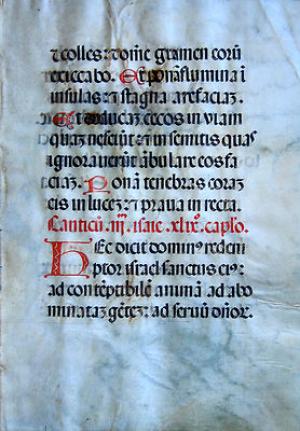 ⁊ colles: ⁊ om̄e gramen eorū
exiccabo. Et ponā flumina ī
insulas: ⁊ stagna arefaciaʒ.
Et educaʒ cecos in viam
quaʒ nesciūt: ⁊ in semitis quas
ignoraverūt ābulare eos fa
ciaʒ. Ponā tenebras coraʒ
eis in luceʒ: ⁊ prava in recta.
Canticū. iij. isaie. xlix. capl̄o.
Hec dicit dominus redem
ptor israel sanctus eius:
ad contēptibilē animā ad abo
minataʒ gētē: ad servū dn̄oꝝ.